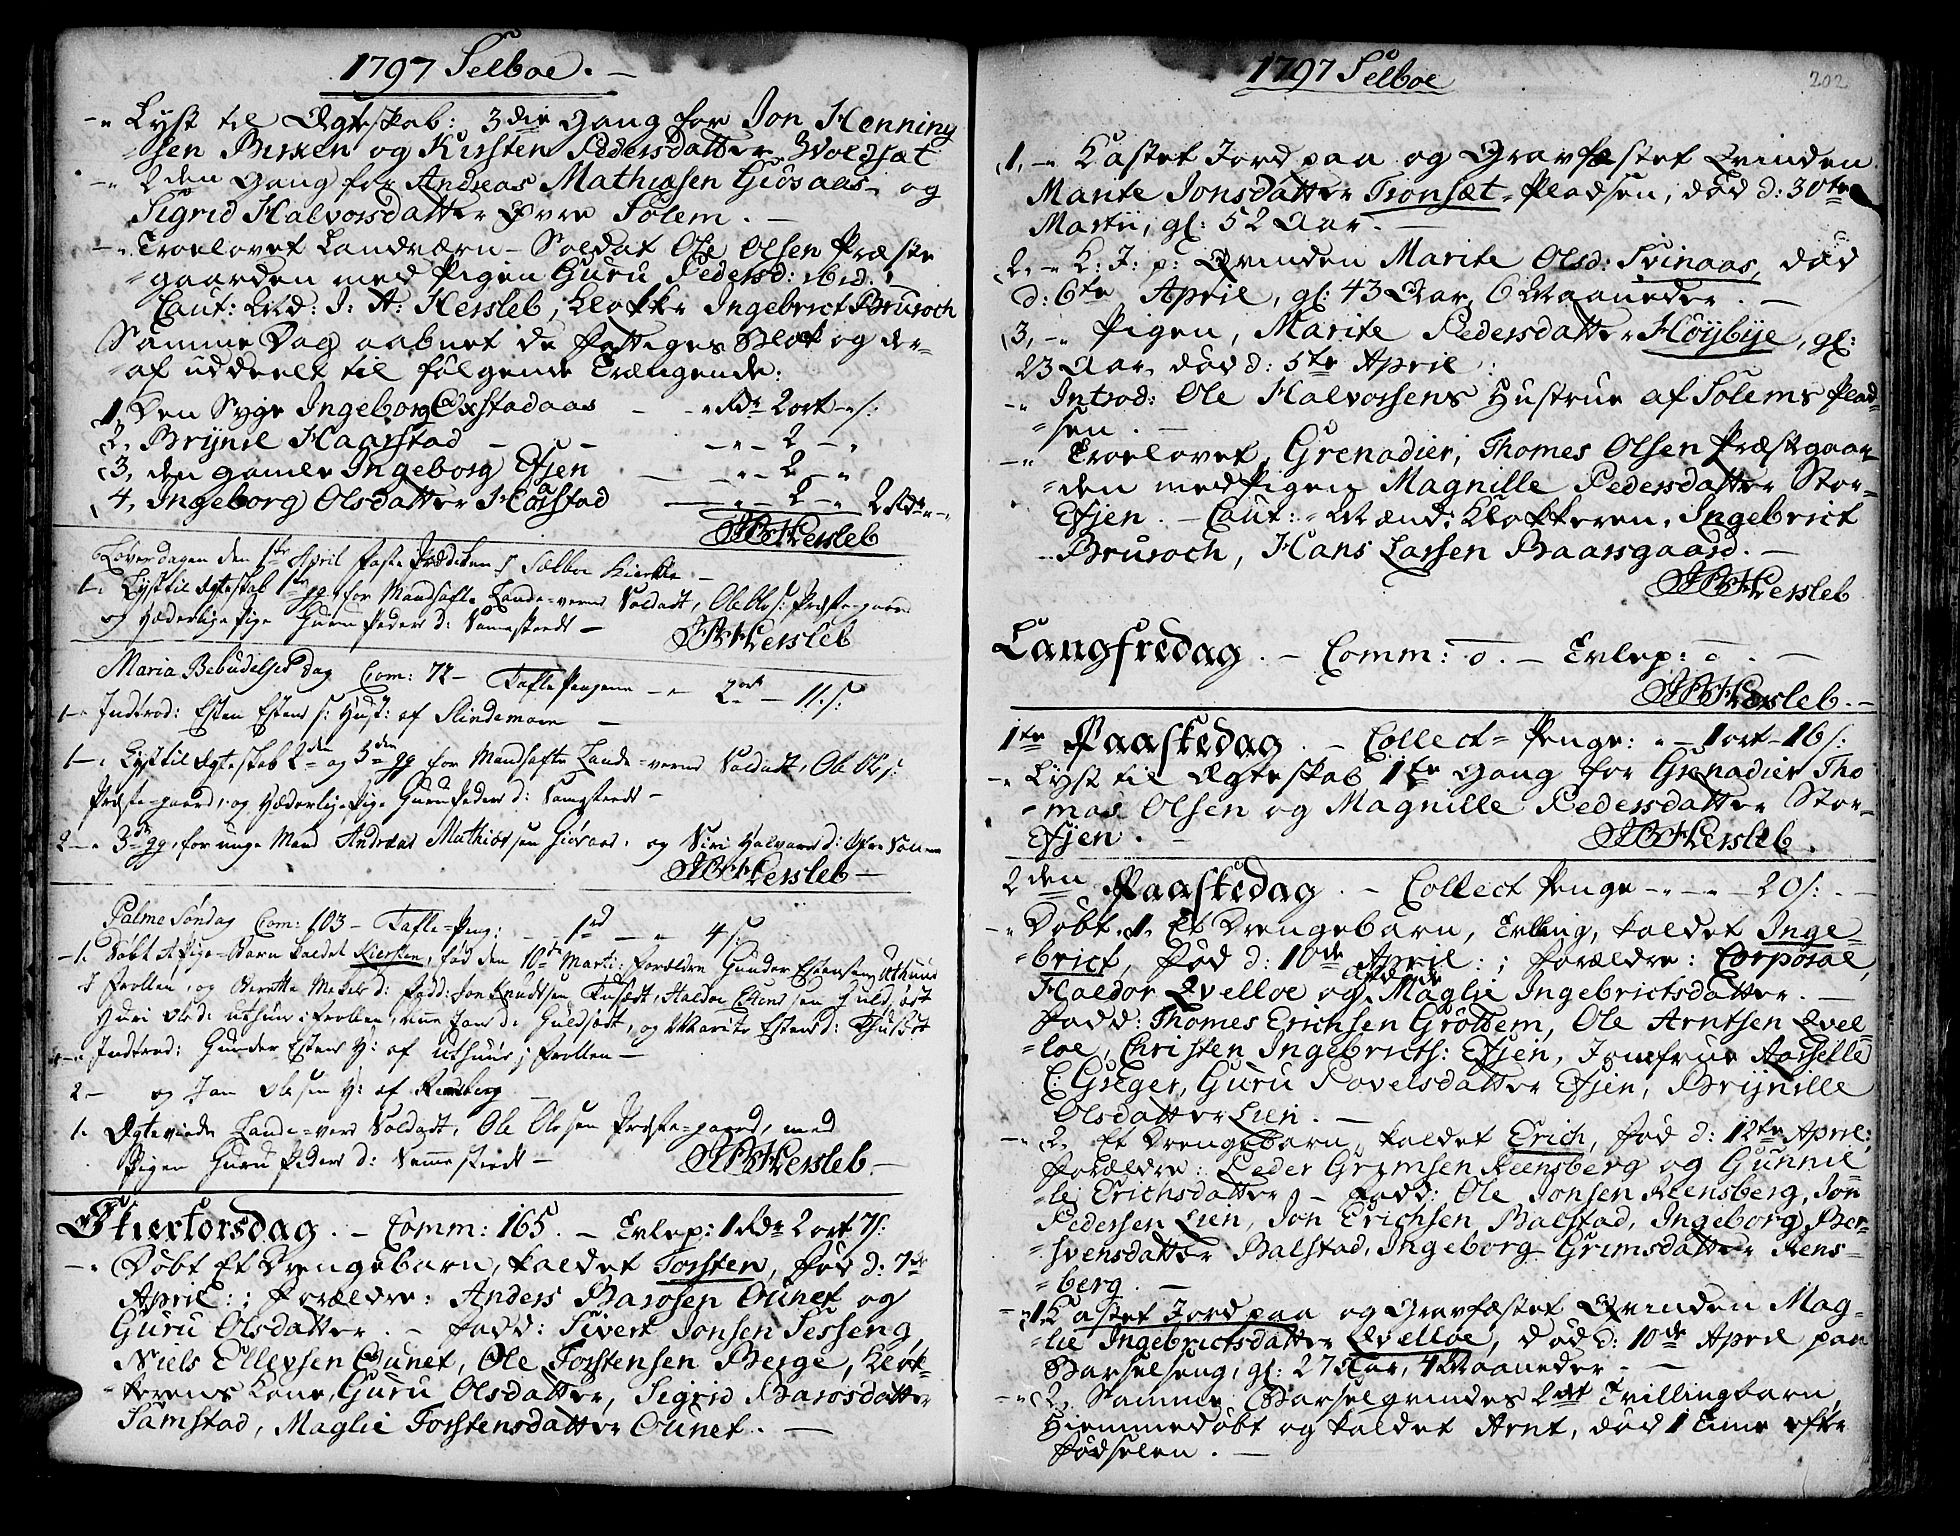 1797 Selboe. -
-" Lyst til Ægteskab: 3die Gang for Jon Henning
sen Birken og Kirsten Pedersdatter Woldsæt
-" 2den Gang for Andreas Mathiasen Giøsaas og
Sigrid Halvorsdatter Øvre Solem. -
-" Troelovet Landværn-Soldat Ole Olsen Præste
=gaarden med Pigen Guru Pedersd: ibid:
Caut: Md: J: A: Hersleb, Klokker Ingebrict Bruroch
Samme Dag aabnet de Fattiges Blok og der-
=af uddeelt til følgende Trængende:
1. Den Syge Ingeborg Oxstadaas - -" Rdr 2 ort -" s:
2. Brynil Haarstad - - -" - 2 - "
3, den gamle Ingeborg Efjen - -" - 2 - "
4, Ingeborg Olsdatter Hårstad -" - 2 - " 2 Rdr -"-
JBHersleb
Løverdagen den 1ste April Faste Prædiken i Sælboe Kierke -
1- Lyst til Ægteskab 1ste gg for Mandhafte Lande-verns Soldadt, Ole Ols: Præste-gaard
og Hæderlige Pige Guru Peders d: Sammestedt -
JBHersleb
Maria Bebudelses dag Com: 72 - Tafle Pengene - " 2 ort - 11 s:
1-" Introd: Esten Estens: Hust: af Slindemoen -
1-" Lyst til Ægteskab 2den og 3den gg for Mandhafte Lande-verns Soldadt, Ole Ols:
Præste-gaard, og Hæderlige Pige Guru Peders d: Sammestedt -
2-" 3die gg, for unge Mand Andreas Mathias sen Giøsaas, og Siri Halvors d: Øfre Solem
JBHersleb -
Palme Søndag Com: 103 - Tafle-Peng: - 1 ort - " 4 s:
-1. Døbt et Pige-Barn kaldet Kiersten, fød den 10de Marti: Forældre Gunder Estensen Uthuus
I Frollen, og Berette
1-" Introd: Gunder Estens H: af Uthuus i Frollen -
2- og Jon Olsen H: af Rensberg
1. Ægteviede Lande-vern Soldadt, Ole Olsen Præste-gaard, med
Pigen Guru Peders d: Sammestedt -
JBHersleb -
Skiertorsdag. - Comm: 165. - Evlep: 1 Rdr 2 ort 7 s:
-" Døbt Et Drengebarn, kaldet Torsten, fød d: 7de
April: ; Forældre: Anders Barosen Ounet og
Guru Olsdatter. - Fadd: Sivert Jonsen Sesseng,
Niels Ellevsen Ounet, Ole Torstensen Berge, Klok-
=kerens Kone, Guru Olsdatter, Sigrid Barosdatter
Samstad, Maglie Torstensdatter Ounet. -
1797 Selboe
202
1, -" Kastet Jord paa og Gravfæstet Qvinden
Marite Jonsdatter Tronsæt=Pladsen, død d: 30te
Martii, gl: 52 Aar. -
2. -" K: J: p: Qvinden Marite Olsd: Svinaas, død
d: 6te April, gl: 43 Aar, 6 Maaneder. -
3, -" Pigen, Marite Pedersdatter Høÿbÿe, gl:
23 Aar, død d: 5te April:
-" Introd: Ole Halvorsens Hustrue af Solems Plad-
=sen. -
-" Troelovet, Grenadier, Thomes Olsen Præstgaar-
=den med Pigen Magnille Pedersdatter Stor-
Efjen. - Caut:=Mænd: Klokkeren, Ingebrict
Bruroch, Hans Larsen Baarsgaard. -
JBHersleb
Langfredag. - Comm: o. - Evlep: o. -
JBHersleb. -
1te Paaskedag. - Collect=Penge: " - 1 ort - 16 s:
-" Lyst til Ægteskab 1te Gang for Grenadier Tho
=mas Olsen og Magnille Pedersdatter Stor-
Efjen. -
JBHersleb.
2den Paaskedag. - Collect Penge -"-"- 20 s: -
-" Døbt. 1. Et Drengebarn, Evling, kaldet Inge-
=brict, Fød d: 10de April: ; Forældre: Corporal
Haldor Qvelloe og Maglie Ingebrictsdatter. -
Fadd: Thomes Erichsen Grøttem, Ole Arntsen Qvel-
=loe, Christen Ingebricts: Efjen, Jomfrue
C: Greger, Guru Povelsdatter Efjen, Brÿnille
Olsdatter Lien. -
-" 2. Et Drengebarn, kaldet Erich, fød d: 12te April;
Forældre: Peder Grimsen Reensberg og Gunnil-
=le Erichsdatter, - Fadd: Ole Jonsen Reensberg, Jon
Pedersen Lien, Jon Erichsen Balstad, Ingeborg Ber-
=svensdatter Balstad, Ingeborg Grimsdatter Rens-
=berg. -
-" 1. Kastet Jord paa og Gravfæstet Qvinden Mag-
=lie Ingebrictsdatter Qvelloe, død d: 10de April paa
Barselseng, gl: 27 Aar, 4 Maaneder. -
-" 2. Samme Barselqvindes 2det Tvillingbarn,
Hiemmedøbt og kaldet Arnt, død 1 Time efter
Fødselen. -